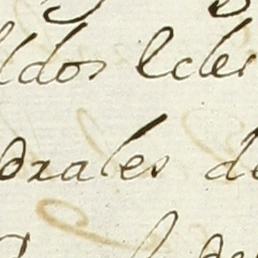 ldos Ecles
drales de